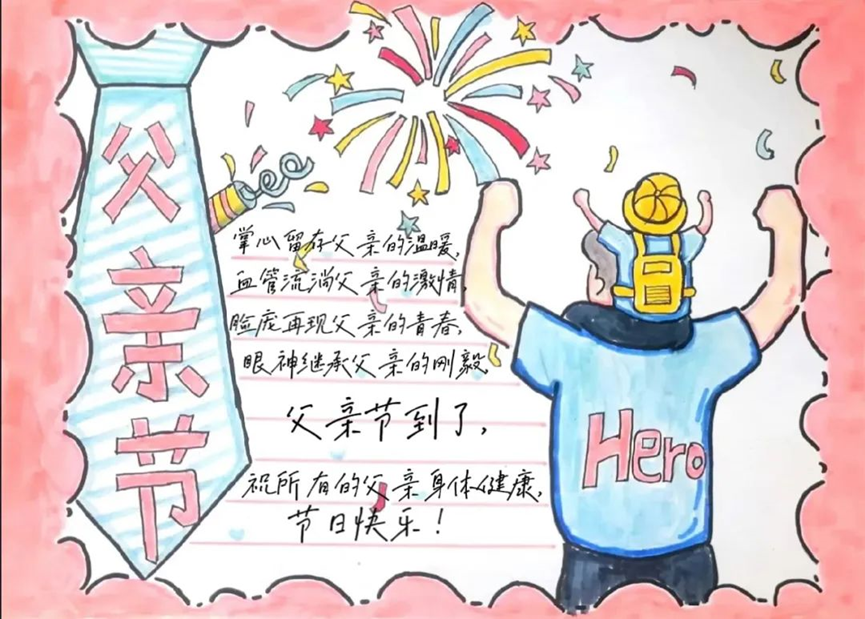 父亲节
掌心留存父亲的温暖,
血管流淌父亲的激情,
脸庞再现父亲的青春,
眼神继承父亲的刚毅,
父亲节到了,
祝所有的父亲身体健康,
节日快乐!
Hero